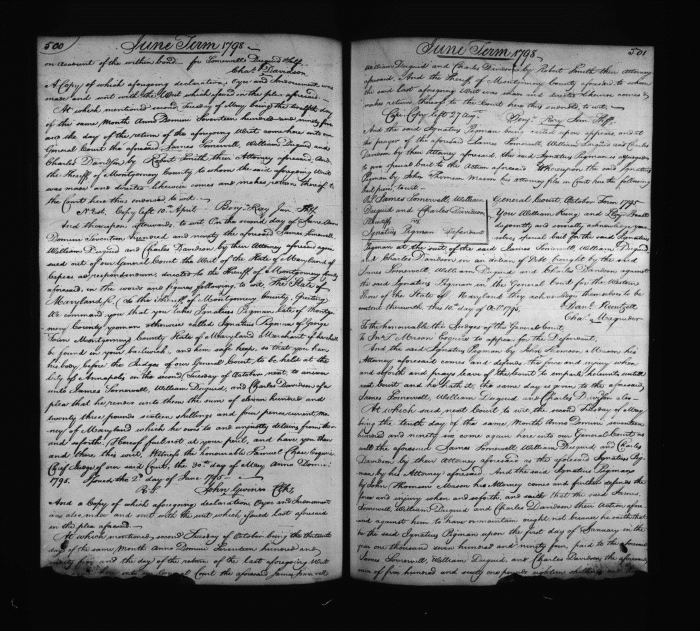 500 June Term 1798
on account of the within bond for Somervell Duguid &
Chas. Davidson
A Copy of which aforegoing declaration, Oyer and Instrument was
made and sent with the Writ which issued in the plea aforesaid
At which mentioned second Tuesday of May being the twelfth day
of the same Month Anno Domini Seventeen hundred and ninety five
and the day of the return of the aforegoing Writ come here into the
General Court the aforesaid James Somervell, William Duguid and
Charles Davidson by Robert Smith their Attorney aforesaid And
the Sheriff of Montgomery County to whom the said aforegoing Writ
was made and directed likewise comes and makes return thereof to
the Court here thus endorsed, to wit
N. Est. Copy left 10 April Benj. Ray Jun Shff.
And thereupon afterwards, to wit On the second day of June Anno
Domini Seventeen hundred and ninety the aforesaid James Somervell
William Duguid and Charles Davidson by their Attorney aforesaid again
sued out of our General Court the Writ of the State of Maryland of
Capias ad respondendum directed to the Sheriff of Montgomery County
aforesaid in the words and figures following, to wit, The State of
Maryland Sc. To the Sheriff of Montgomery County. Greeting
We command you that you take Ignatius Pigman late of Montgo
mery County yeoman otherwise called Ignatius Pigman of George
Town Montgomery County State of Maryland Merchant if he shall
be found in your bailiwick, and him safe keep, so that you have
his body before the Judges of our General Court to be held at the
City of Annapolis on the second Tuesday of October next to answer
unto James Somervell, William Duguid, and Charles Davidson of a
plea that he render unto them the sum of eleven hundred and
twenty three pounds sixteen shillings and four pence current Mo
ney of Maryland which he owes to and unjustly detains from them
and so forth. Hereof fail not at your peril, and have you then
and there this writ. Witness the honourable Samuel Chase Esquire
Chief Judge of our said Court, the 30th day of May Anno Domini
1795. Issued the 2d day of June 1795
R. S. John Gwinn Clk.
And a Copy of which aforegoing declaration Oyer and Instrument
was also made and sent with the writ which issued last aforesaid
in the plea aforesaid.
At which mentioned second Tuesday of October being the thirteenth
day of the same Month Anno Domini Seventeen hundred and
ninety five and the day of the return of the last aforegoing Writ
here into our General Court the aforesaid James
June Term 1798 501
William Duguid and Charles Davidson by Robert Smith their Attorney
aforesaid. And the Sheriff of Montgomery County aforesaid to whom
the said last aforegoing Writ was made and directed likewise comes &
makes return thereof to the Court here thus endorsed to wit
Cepi Copy left 27 Aug. Benj. Ray Jun Shff.
And the said Ignatius Pigman being called upon appears and at
the prayer of the aforesaid James Somervell, William Duguid and Charles
Davidson by their Attorney aforesaid, the said Ignatius Pigman is
to give special bail to the Action aforesaid Whereupon the said Ignatius
Pigman by John Thomson Mason his attorney files in Court here the following
bail piece, to wit
James Somervell, William
Duguid and Charles Davidson
Plaintiffs
vs
Ignatius Pigman Defendant
General Court October Term 1795
You William King and
jointly and severally acknowledge your
selves special bail for the said Ignatius
Pigman at the suit of the said James Somervell William Duguid
and Charles Davidson on an Action of Debt brought by the said
James Somervell, William Duguid and Charles Davidson against
the said Ignatius Pigman in the General Court for the Western
Shore of the State of Maryland they acknowledge themselves to be
content therewith this 10th day of Oct. 1795.
Danl. Reintzel
Chas. Worthington
To the honorable the Judges of the General Court
Jno. T. Mason Esquire to appear for the Defendant.
And the said Ignatius Pigman by John Thomson Mason his
Attorney aforesaid comes and defends the force and injury when
and so forth and prays leave of the Court to imparl hereunto until
next Court and he hath it, the same day is given to the aforesaid
James Somervell, William Duguid and Charles Davidson also
At which said next Court to wit the second Tuesday of May
being the tenth day of the same Month Anno Domini seventeen
hundred and ninety six come again here into our General Court as
well the aforesaid James Somervell William Duguid and Charles
Davidson by their Attorney aforesaid as the aforesaid Ignatius Pig
man by his Attorney aforesaid. And the said Ignatius Pigman
by John Thomson Mason his Attorney comes and further defends the
force and injury when and so forth, and saith that the said James
Somervell, William Duguid and Charles Davidson their Action afore
said against him to have or maintain ought not because he saith that
he the said Ignatius Pigman upon the first day of January in the
year one thousand seven hundred and ninety four paid to the aforesaid
James Somervell, William Duguid and Charles Davidson the aforesaid
sum of five hundred and sixty one pounds eighteen shillings